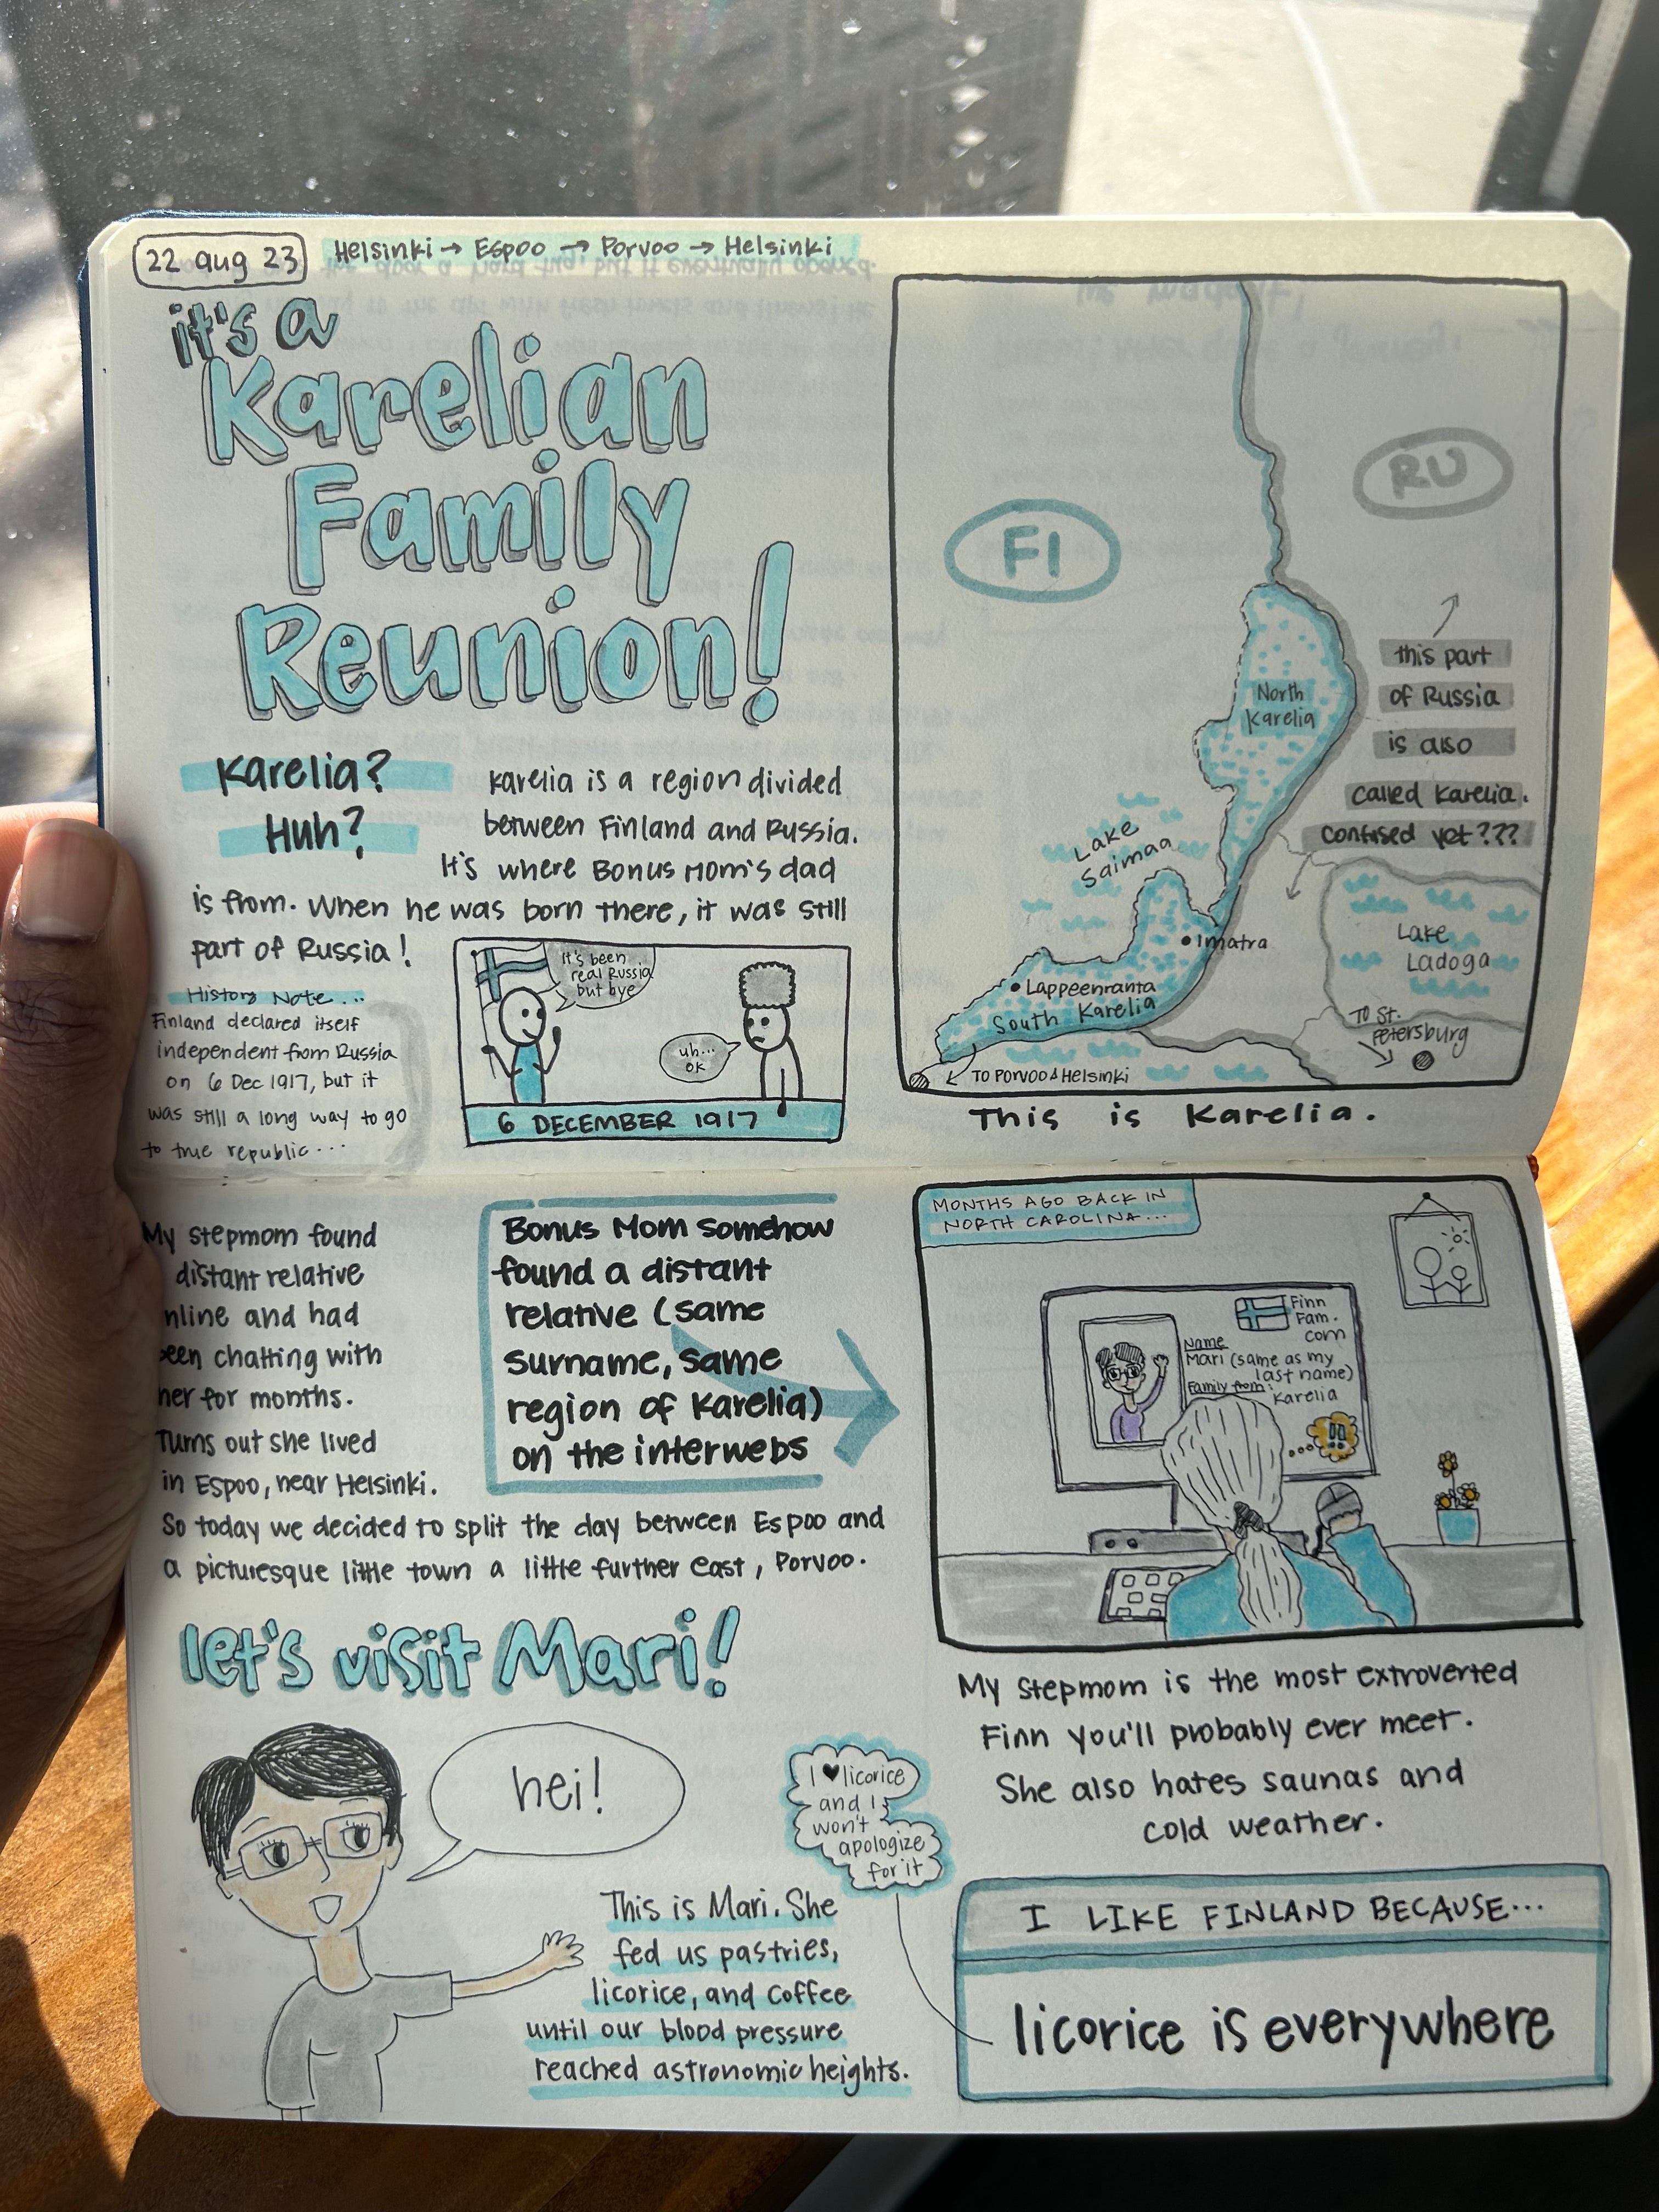 22 aug 23
Helsinki → Espoo → Porvoo → Helsinki
it's a
Karelian
Family
Reunion!
Karelia?
Huh?
Karelia is a region divided
between Finland and Russia.
It's where Bonus Mom's dad
is from. When he was born there, it was still
part of Russia!
History Note...
Finland declared itself
independent from Russia
on 6 Dec 1917, but it
was still a long way to go
to true republic...
It's been
real Russia
but bye
uh...
ok
6 DECEMBER 1917
FI
RU
this part
of Russia
is also
called Karelia.
confused yet???
North
Karelia
Lake
Saimaa
Imatra
Lappeenranta
South Karelia
Lake
Ladoga
TO St.
Petersburg
TO PORVOO & Helsinki
This is Karelia.
My stepmom found
distant relative
nline and had
een chatting with
her for months.
Turns out she lived
in Espoo, near Helsinki.
So today we decided to split the day between Espoo and
a picturesque little town a little further east, Porvoo.
Bonus Mom somehow
found a distant
relative (same
surname, same
region of Karelia)
on the interwebs
MONTHS AGO BACK IN
NORTH CAROLINA...
Finn
Fam.
com
Name
Mari (same as my
last name)
Family from:
Karelia
!!
My stepmom is the most extroverted
Finn you'll probably ever meet.
She also hates saunas and
cold weather.
let's visit Mari!
hei!
This is Mari. She
fed us pastries,
licorice, and coffee
until our blood pressure
reached astronomic heights.
I ♥ licorice
and I
won't
apologize
for it
I LIKE FINLAND BECAUSE...
licorice is everywhere